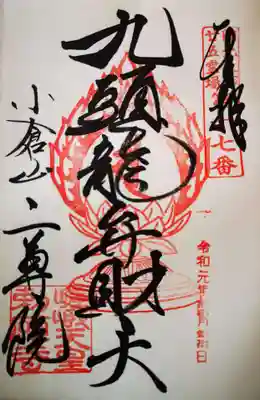 奉拝
廿五霊場
七番
九頭龍弁財天
令和元年
小倉山二尊院